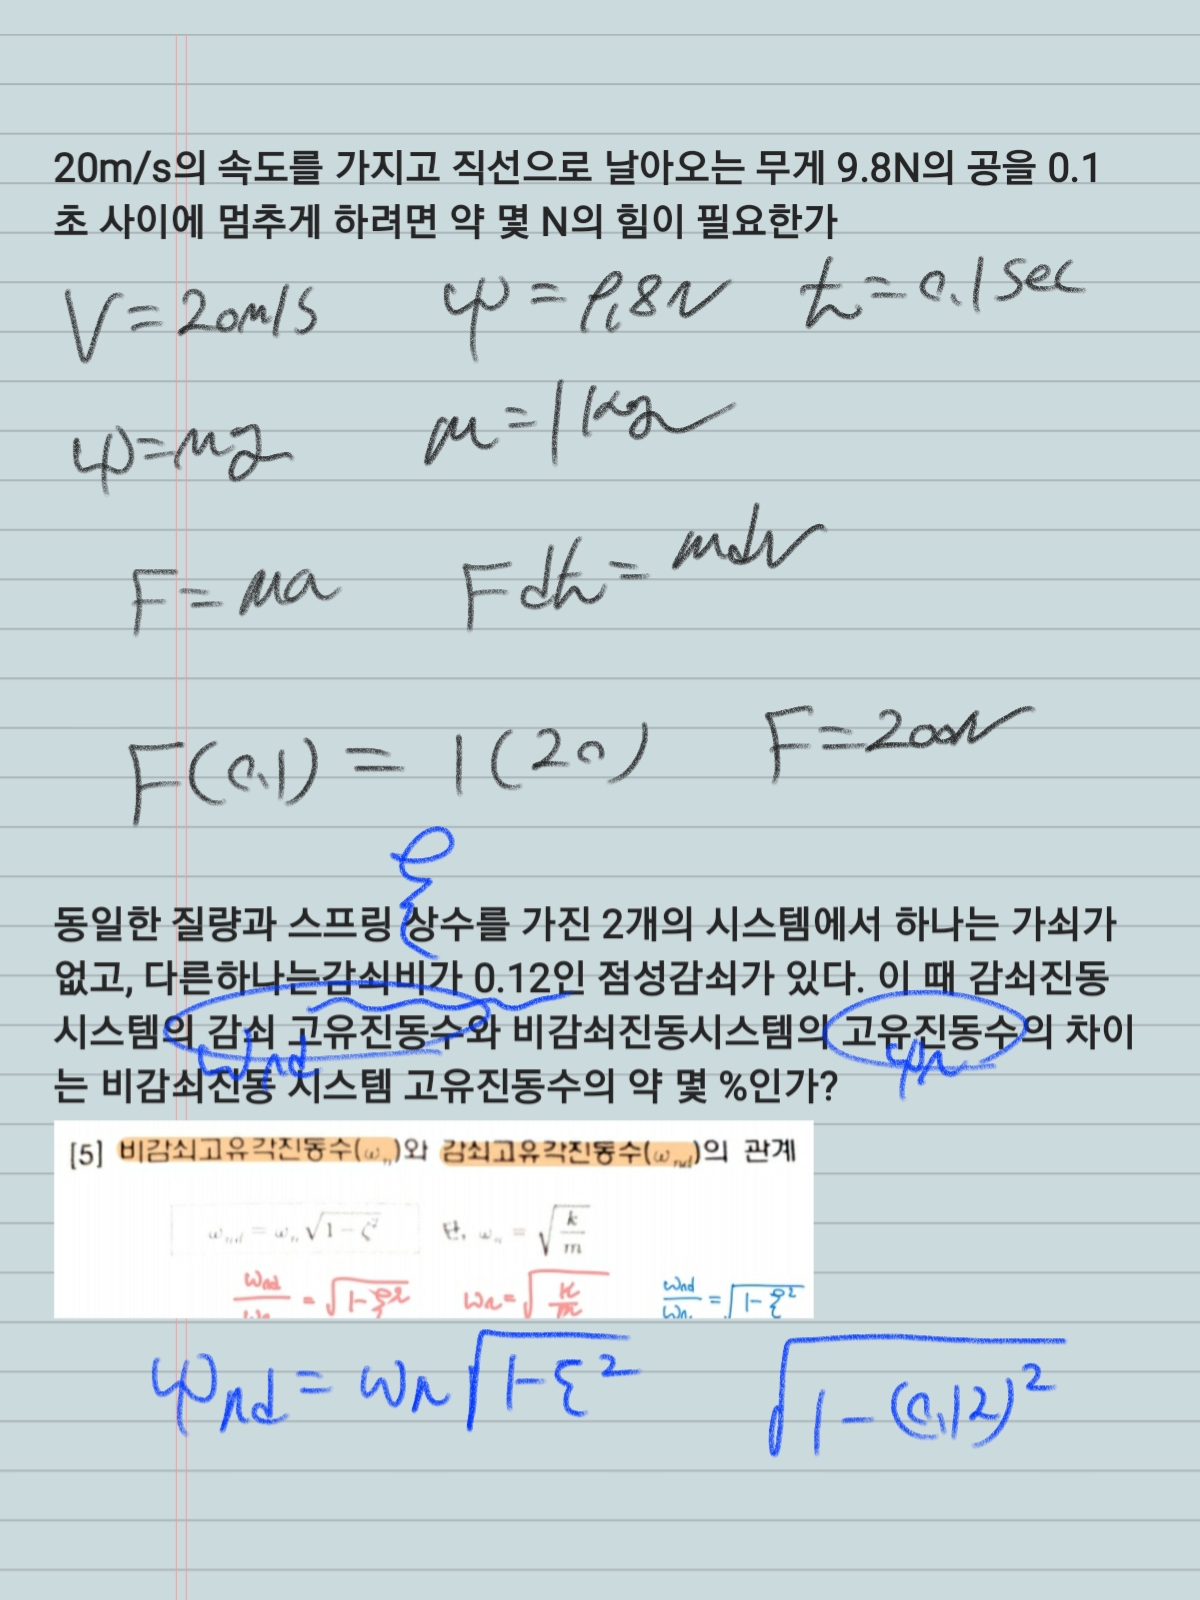 20m/s의 속도를 가지고 직선으로 날아오는 무게 9.8N의 공을 0.1
초 사이에 멈추게 하려면 약 몇 N의 힘이 필요한가
V=20m/s W=9.8N t=0.1sec
W=mg m=1kg
F=ma Fdt=mdv
F(0.1)=1(20) F=200N
ξ
동일한 질량과 스프링 상수를 가진 2개의 시스템에서 하나는 가쇠가
없고, 다른하나는감쇠비가 0.12인 점성감쇠가 있다. 이 때 감쇠진동
시스템의 감쇠 고유진동수와 비감쇠진동시스템의 고유진동수의 차이
ωnd ωn
는 비감쇠진동 시스템 고유진동수의 약 몇 %인가?
[5] 비감쇠고유각진동수(ωn)와 감쇠고유각진동수(ωnd)의 관계
ωnd = ωn√1-ζ² 단, ωn = √k/m
ωnd/ωn = √1-ξ² ωn=√k/m ωnd/ωn = √1-ξ²
ωnd = ωn√1-ξ² √1-(0.12)²